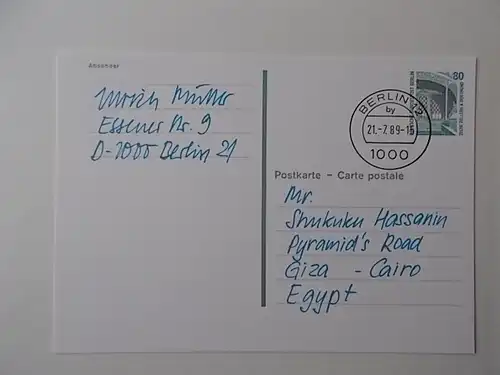 Absender
Ulrich Müller
Essener Str. 9
D-1000 Berlin 21
80
BERLIN 12
by
21.-7.89-15
1000
Postkarte – Carte postale
Mr.
Shukuku Hassanin
Pyramid's Road
Giza - Cairo
Egypt